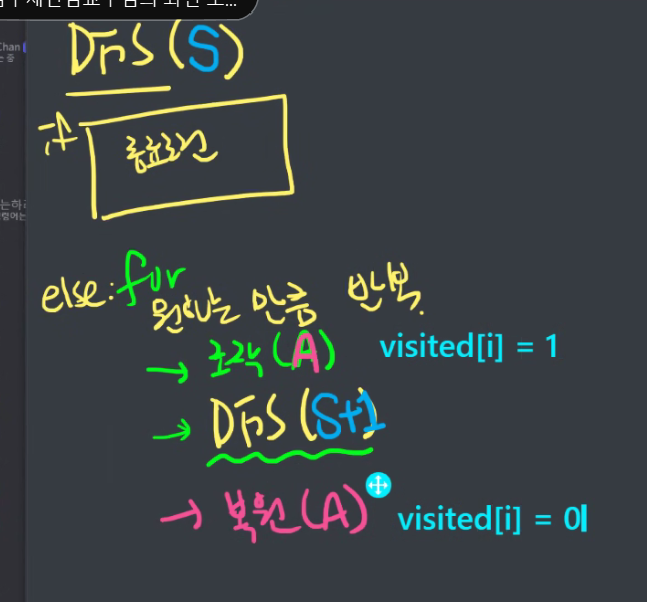 DFS(S)
if
종료조건
else: for
원하는 만큼 반복.
→ 조작(A) visited[i] = 1
→ DFS(S+1
→ 복원(A) visited[i] = 0